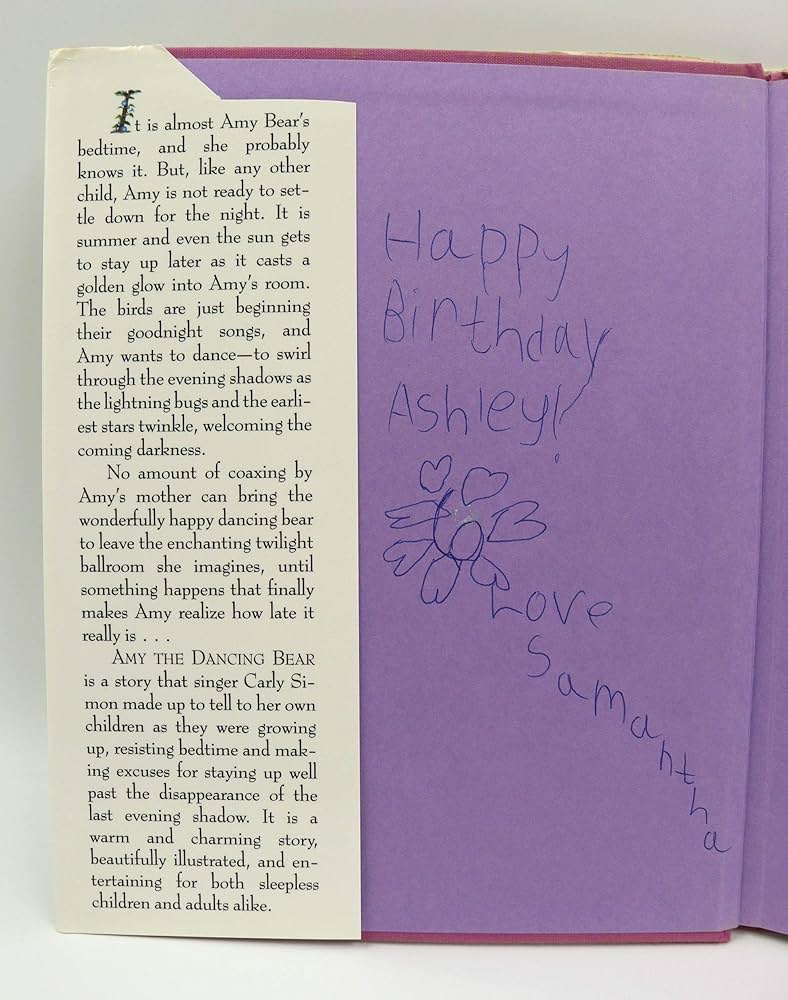 It is almost Amy Bear's
bedtime, and she probably
knows it. But, like any other
child, Amy is not ready to set-
tle down for the night. It is
summer and even the sun gets
to stay up later as it casts a
golden glow into Amy's room.
The birds are just beginning
their goodnight songs, and
Amy wants to dance—to swirl
through the evening shadows as
the lightning bugs and the earli-
est stars twinkle, welcoming the
coming darkness.
No amount of coaxing by
Amy's mother can bring the
wonderfully happy dancing bear
to leave the enchanting twilight
ballroom she imagines, until
something happens that finally
makes Amy realize how late it
really is . . .
AMY THE DANCING BEAR
is a story that singer Carly Si-
mon made up to tell to her own
children as they were growing
up, resisting bedtime and mak-
ing excuses for staying up well
past the disappearance of the
last evening shadow. It is a
warm and charming story,
beautifully illustrated, and en-
tertaining for both sleepless
children and adults alike.
Happy
Birthday
Ashley!
Love
Samantha